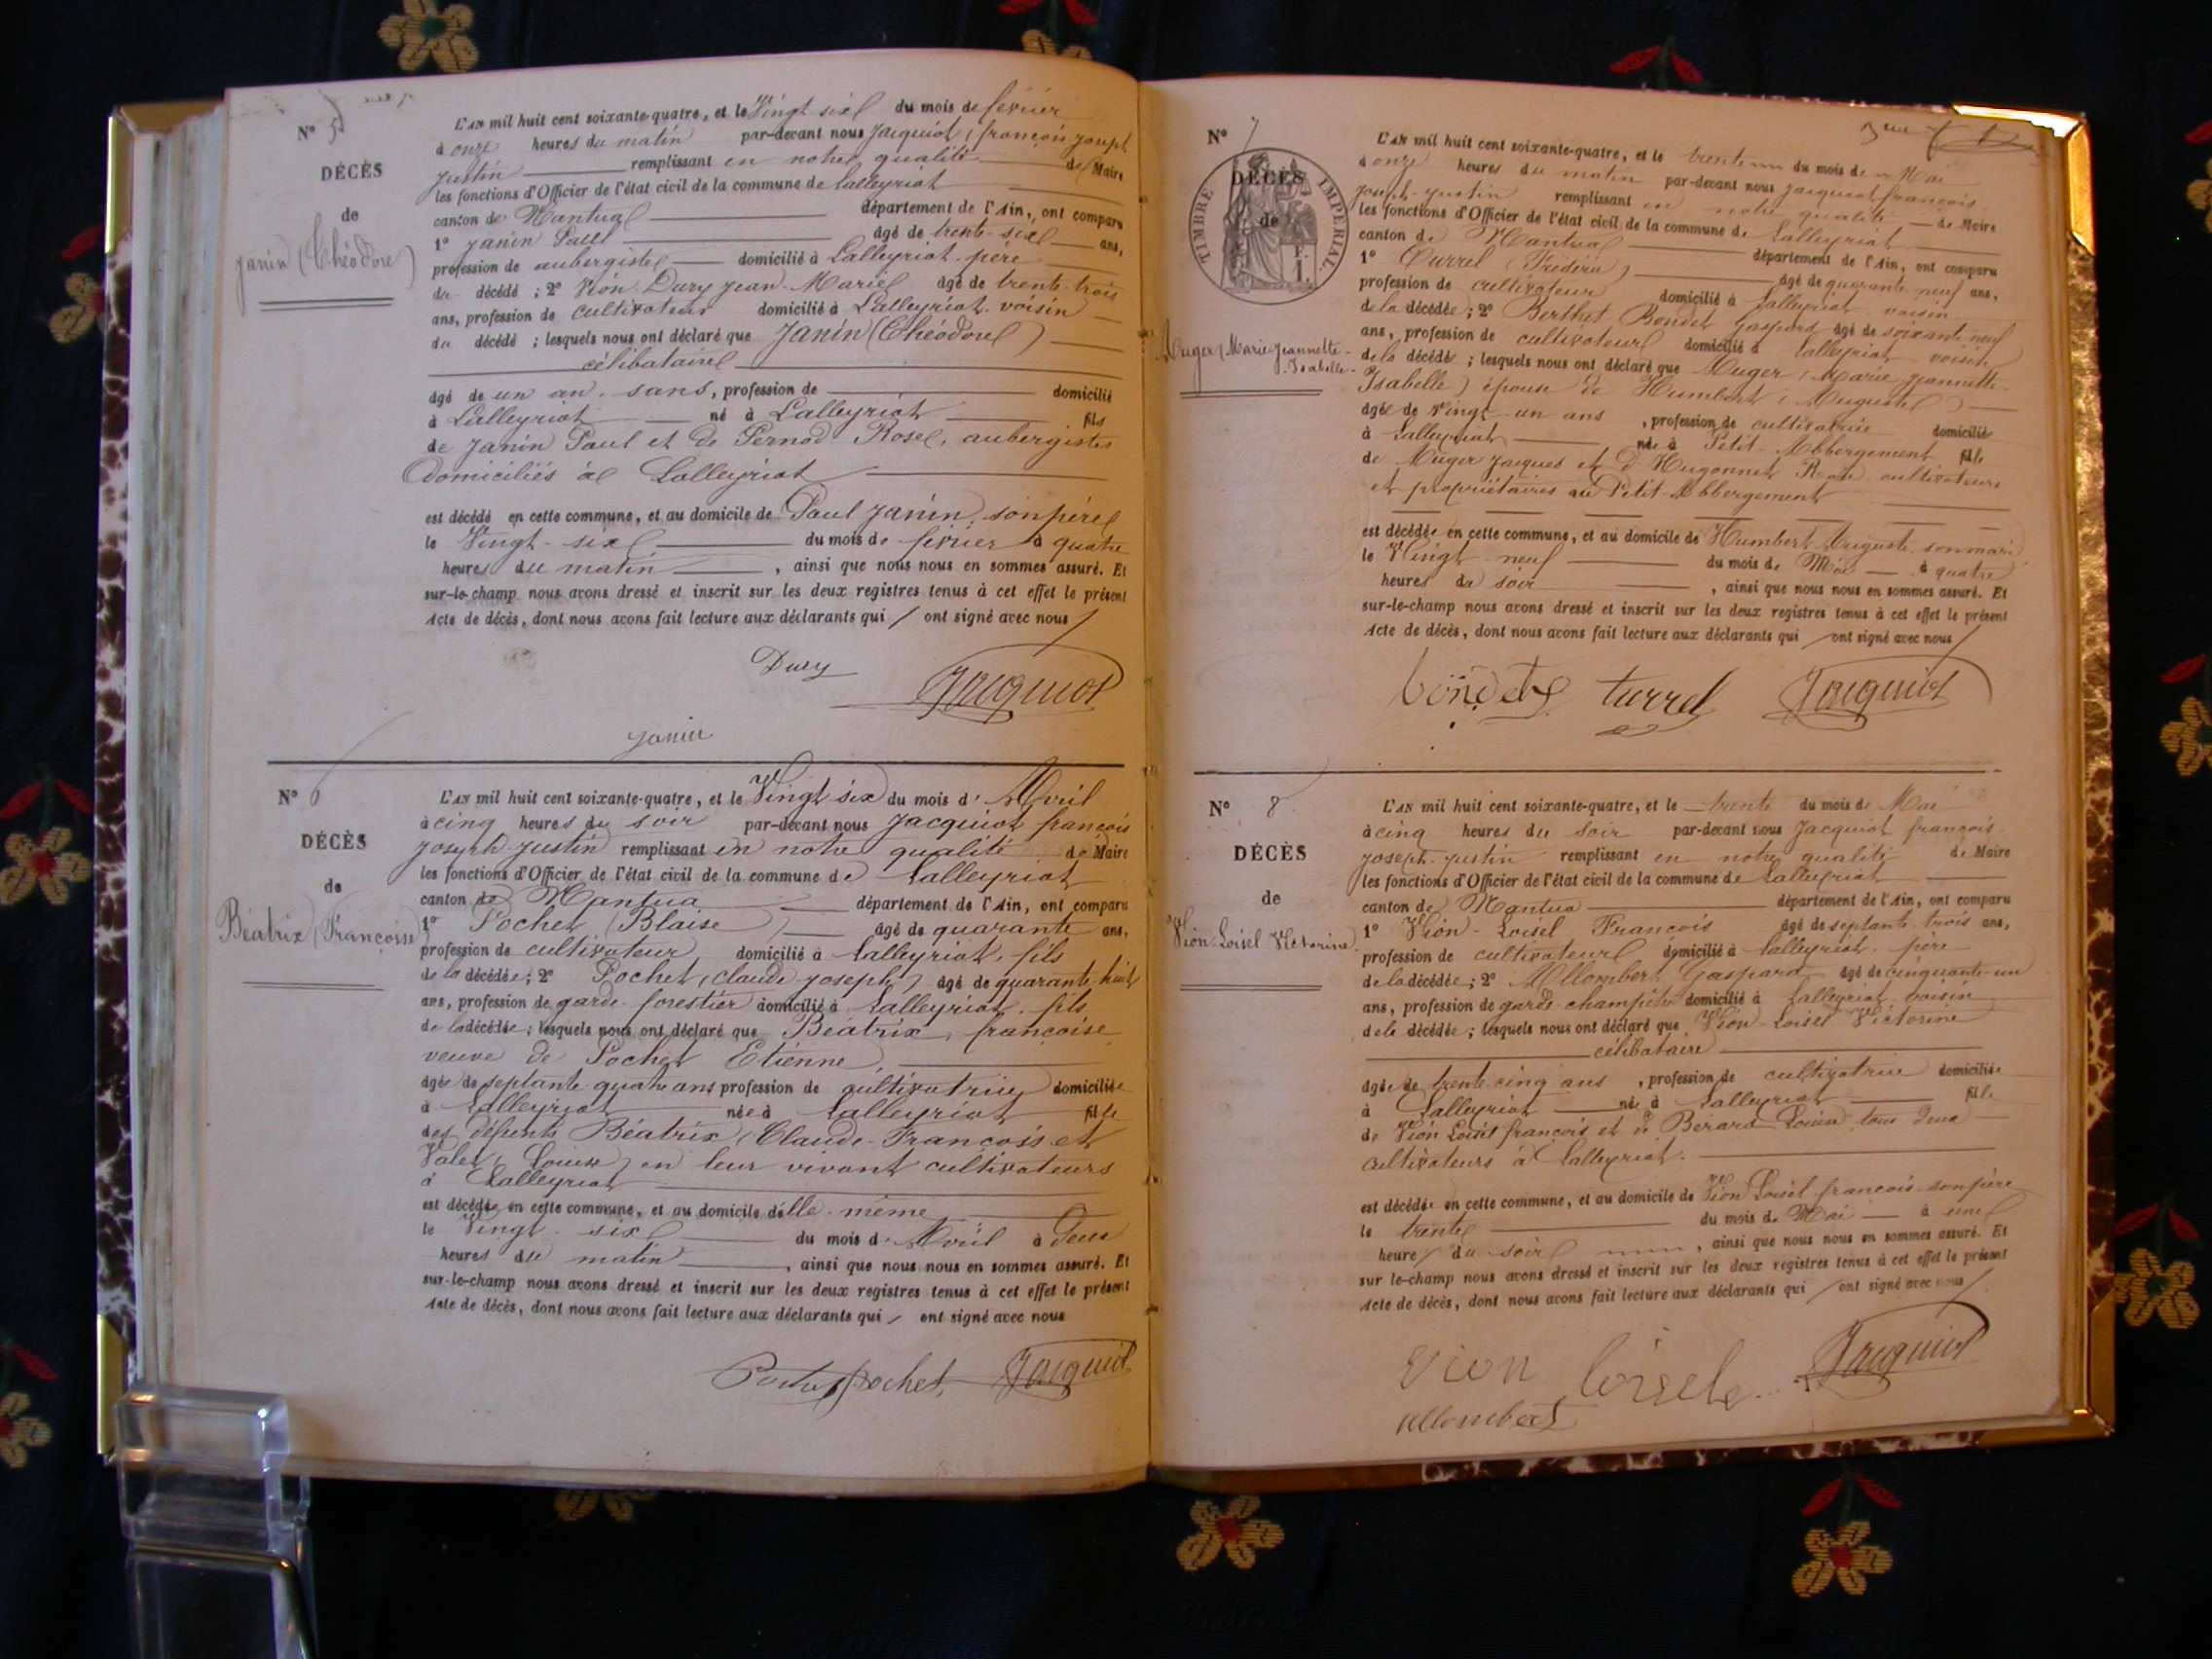 N° 5
DÉCÈS
de
Janin (Théodore)
L'AN mil huit cent soixante-quatre, et le Vingt six du mois de février
à onze heures du matin par-devant nous Jacquiot (françois joseph
justin remplissant en notre qualité de Maire
les fonctions d'Officier de l'état civil de la commune de Lalleyriat
canton de Mantua département de l'Ain, ont comparu
1° Janin Paul âgé de trente-six ans,
profession de aubergiste domicilié à Lalleyriat père
du décédé ; 2° Vion Dury Jean-Marie âgé de trente-trois
ans, profession de cultivateur domicilié à Lalleyriat voisin
du décédé ; lesquels nous ont déclaré que Janin (Théodore)
célibataire
âgé de un an sans, profession de domicilié
à Lalleyriat né à Lalleyriat fils
de Janin Paul et de Pernod Rose, aubergistes
Domiciliés à Lalleyriat
est décédé en cette commune, et au domicile de Paul Janin, son père
le Vingt-six du mois de février à quatre
heures du matin , ainsi que nous nous en sommes assuré. Et
sur-le-champ nous avons dressé et inscrit sur les deux registres tenus à cet effet le présent
Acte de décès, dont nous avons fait lecture aux déclarants qui ont signé avec nous
Dury Jacquiot
Janin
N° 6
DÉCÈS
de
Béatrix (Françoise)
L'AN mil huit cent soixante-quatre, et le Vingt six du mois d'Avril
à cinq heures du soir par-devant nous Jacquiot françois
joseph-justin remplissant en notre qualité de Maire
les fonctions d'Officier de l'état civil de la commune de Lalleyriat
canton de Mantua département de l'Ain, ont comparu
1° Pochet (Blaise) âgé de quarante ans,
profession de cultivateur domicilié à Lalleyriat, fils
de la décédée ; 2° Pochet (Claude-joseph) âgé de quarante-huit
ans, profession de garde-forestier domicilié à Lalleyriat, fils
de la décédée ; lesquels nous ont déclaré que Béatrix, françoise
veuve de Pochet Etienne,
âgée de septante-quatre ans profession de cultivatrice domiciliée
à Lalleyriat née à Lalleyriat fille
des défunts Béatrix (Claude-François et
Valet (Louise) en leur vivant cultivateurs
à Lalleyriat
est décédée en cette commune, et au domicile d'elle-même
le Vingt-six du mois d'Avril à deux
heures du matin , ainsi que nous nous en sommes assuré. Et
sur-le-champ nous avons dressé et inscrit sur les deux registres tenus à cet effet le présent
Acte de décès, dont nous avons fait lecture aux déclarants qui ont signé avec nous
Pochet Jacquiot
N° 7
DÉCÈS
de
TIMBRE IMPERIAL
Muger (Marie jeannette
Isabelle
L'AN mil huit cent soixante-quatre, et le trente du mois de Mai
à onze heures du matin par-devant nous Jacquiot françois
joseph-justin remplissant en notre qualité de Maire
les fonctions d'Officier de l'état civil de la commune de Lalleyriat
canton de Mantua département de l'Ain, ont comparu
1° Turrel âgé de quarante neuf ans,
profession de cultivateur domicilié à Lalleyriat voisin
de la décédée ; 2° Berthet Bondet Gaspard âgé de soixante-neuf
ans, profession de cultivateur domicilié à Lalleyriat voisin
de la décédé ; lesquels nous ont déclaré que Muger (Marie jeannette
Isabelle) épouse de Humbert (Auguste)
âgée de vingt-un ans , profession de cultivatrice domiciliée
à Lalleyriat née à Petit Abbergement fille
de Muger jacques et d'Hugonnet cultivateurs
et propriétaires au Petit-Abbergement
est décédée en cette commune, et au domicile de Humbert Auguste son mari
le Vingt-neuf du mois de Mai à quatre
heures du soir , ainsi que nous nous en sommes assuré. Et
sur-le-champ nous avons dressé et inscrit sur les deux registres tenus à cet effet le présent
Acte de décès, dont nous avons fait lecture aux déclarants qui ont signé avec nous
bondet turrel Jacquiot
N° 8
DÉCÈS
de
Vion-Loisel Victorine
L'AN mil huit cent soixante-quatre, et le trente du mois de Mai
à cinq heures du soir par-devant nous Jacquiot françois
joseph-justin remplissant en notre qualité de Maire
les fonctions d'Officier de l'état civil de la commune de Lalleyriat
canton de Mantua département de l'Ain, ont comparu
1° Vion-Loisel François âgé de septante trois ans,
profession de cultivateur domicilié à Lalleyriat père
de la décédée ; 2° Allombert Gaspard âgé de cinquante-un
ans, profession de garde-champêtre domicilié à Lalleyriat voisin
de la décédée ; lesquels nous ont déclaré que Vion-Loisel Victorine
célibataire
âgée de trente-cinq ans , profession de cultivatrice domiciliée
à Lalleyriat née à Lalleyriat fille
de Vion Loisel françois et de Berard Louise tous deux
cultivateurs à Lalleyriat.
est décédée en cette commune, et au domicile de Vion Loisel françois son père
le trente du mois de Mai à une
heure du soir , ainsi que nous nous en sommes assuré. Et
sur le-champ nous avons dressé et inscrit sur les deux registres tenus à cet effet le présent
Acte de décès, dont nous avons fait lecture aux déclarants qui ont signé avec nous
Vion loisel Jacquiot
allombert